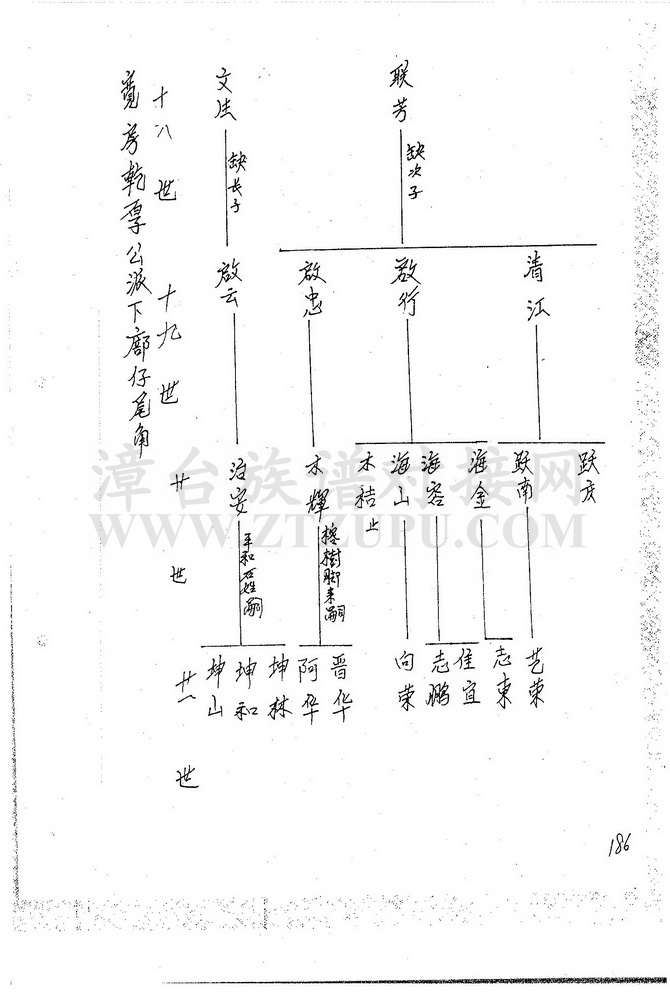 寬房乾厚公派下廍仔尾角
十八世
联芳
缺次子
文法
缺长子
十九世
清江
啟行
啟忠
啟云
廿世
跃庆
跃南
海金
海容
海山
木桔止
木輝
榕樹脚来嗣
治安
平和石姓嗣
廿一世
艺荣
志東
佳宜
志鹏
向荣
晋华
阿华
坤林
坤和
坤山
186
漳台族谱对接网
WWW.ZTZUPU.COM